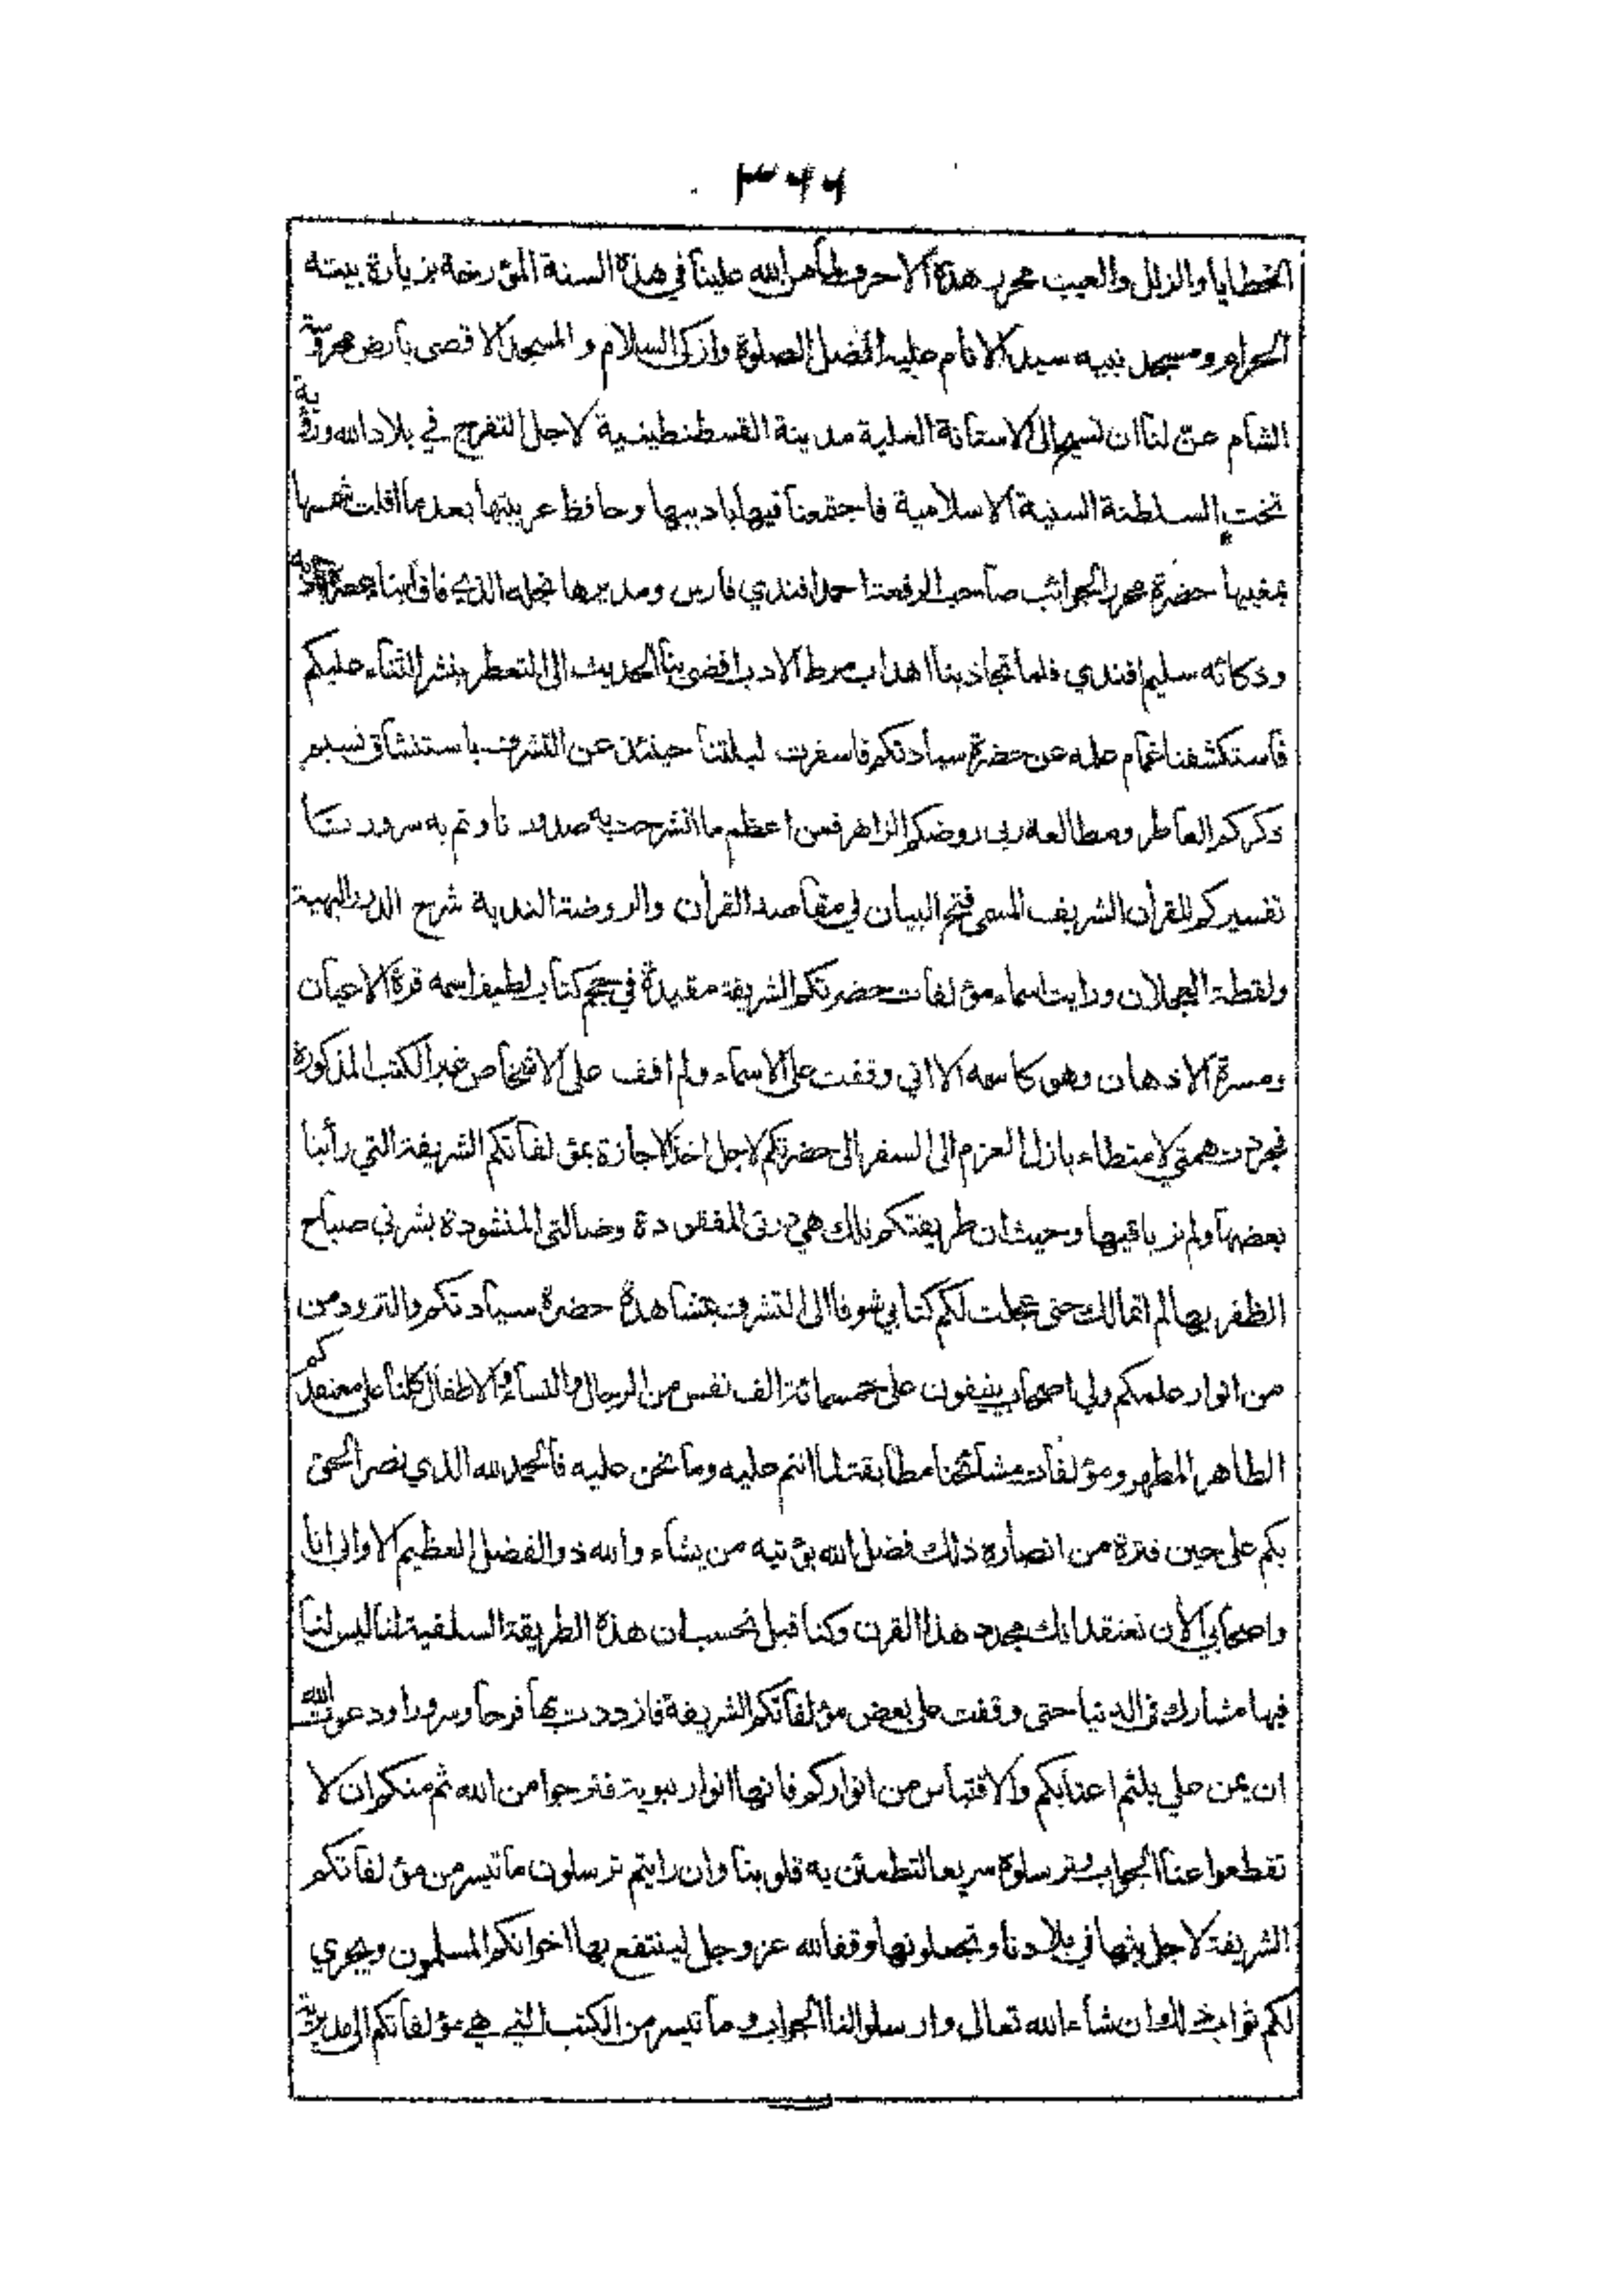 ٣٦٦
الخطايا والزلل والعيب محرر هذه الاحرف لما من الله علينا في هذه السنة المؤرخة بزيارة بيته
الحرام ومسجد نبيه سيد الانام عليه افضل الصلوة وازكى السلام و المسجد الاقصى بارض محروسة
الشام عنّ لنا ان نسير الى الاستانة العلية مدينة القسطنطينية لاجل التفرج في بلاد الله ورؤية
تخت السلطنة السنية الاسلامية فاجتمعنا فيها باديبها وحافظ عربيتها بعد ما افلت شمسها
بمغيبها حضرة محرر الجوائب صاحب الرفعة احمد افندي فارس ومديرها نجله الذي فاق ابناء عصره
وذكائه سليم افندي فلما تجاذبنا اهداب مرط الادب افضى بنا الحديث الى التعطر بنشر الثناء عليكم
فاستكشفنا غمام عله عن حضرة سيادتكم فاسفرت ليلتنا حينئذ عن التشرف باستنشاق نسيم
ذكركم العاطر ومطالعة ربى روضكم الزاهر فمن اعظم ما انشرحت به صدورنا وتم به سرورنا
تفسيركم للقرأن الشريف المسمى فتح البيان في مقاصد القرأن والروضة الندية شرح الدرر البهية
ولقطة العجلان ورايت اسماء مؤلفات حضرتكم الشريفة مقيدة في حجم كتاب لطيف اسمه قرة الاعيان
ومسرة الاذهان وهو كاسمه الا اني وقفت على الاسماء ولم اقف على الاشخاص غير الكتب المذكورة
فجردت همتي لامتطاء بازل العزم الى السفر الى حضرتكم لاجل اخذ الاجازة بمؤلفاتكم الشريفة التي رأينا
بعضها ولم نر باقيها وحيث ان طريقتكم تلك هي درتى المفقودة وضالتى المنشودة بشرني صباح
الظفر بها لم اتمالك حتى عجلت لكم كتابي شوقا الى التشرف بمشاهدة حضرة سيادتكم والتزود من
من انوار علمكم ولي اصحاب ينيفون على خمسمائة الف نفس من الرجال والنساء والاطفال كلنا على معتقدكم
الطاهر المطهر ومؤلفات مشائخنا مطابقة لما انتم عليه وما نحن عليه فالحمد لله الذي نصر الحق
بكم على حين فترة من انصاره ذلك فضل الله يؤتيه من يشاء والله ذو الفضل العظيم الا واني انا
واصحابي الأن نعتقد انك مجدد هذا القرن وكنا قبل نحسب ان هذه الطريقة السلفية لنا ليس لنا
فيها مشارك في الدنيا حتى وقفت على بعض مؤلفاتكم الشريفة فازددت بها فرحا وسرورا ودعوت الله
ان يمن علي بلثم اعتابكم والاقتباس من انواركم فانها انوار نبوية فنرجوا من الله ثم منكم ان لا
تقطعوا عنا الجواب وترسلوه سريعا لتطمئن به قلوبنا وان رايتم ترسلون ما تيسر من مؤلفاتكم
الشريفة لاجل بثها في بلادنا وتجعلونها وقفا لله عز وجل لينتفع بها اخوانكم المسلمون ويجري
لكم ثواب ذلك ان شاء الله تعالى وارسلوا لنا الجواب وما تيسر من الكتب التي هي مؤلفاتكم الى مدينة